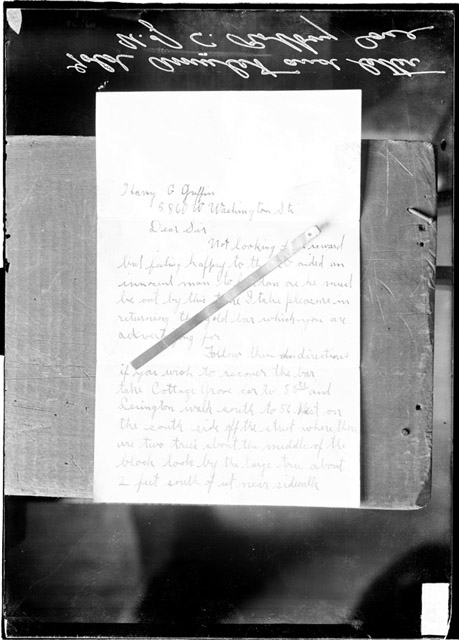 Harry G Griffin
5860 W Washington St
Dear Sir
Not looking reward
but feeling happy to aided an
innocent man to as he must
be out by this I take pleasure in
returning gold bar which you are
advertising for
Follow these directions
if you wish to recover the bar
take Cottage Grove car to and
Lexington walk south to 56 on
the south side off the street where there
are two trees about the middle of the
block look by the large tree about
2 feet south of it near sidewalk